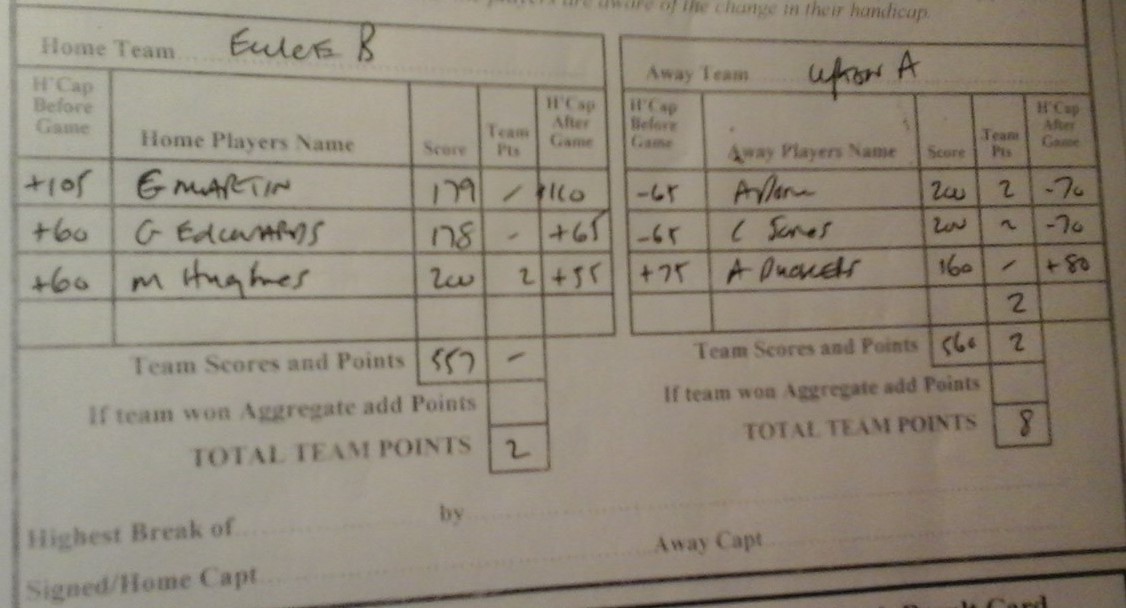 players are aware of the change in their handicap.
Home Team B
H'Cap Before Game Home Players Name Score Team Pts H'Cap After Game
+105 G MARTIN 179 - +110
+60 G EdwARDS 178 - +65
+60 M Hughes 200 2 +55
Team Scores and Points 557 -
If team won Aggregate add Points
TOTAL TEAM POINTS 2
Away Team Upton A
H'Cap Before Game Away Players Name Score Team Pts H'Cap After Game
-65 A 200 2 -70
-65 C Jones 200 2 -70
+75 A Duckett 160 - +80
2
Team Scores and Points 560 2
If team won Aggregate add Points
TOTAL TEAM POINTS 8
Highest Break of by
Signed/Home Capt Away Capt
Card